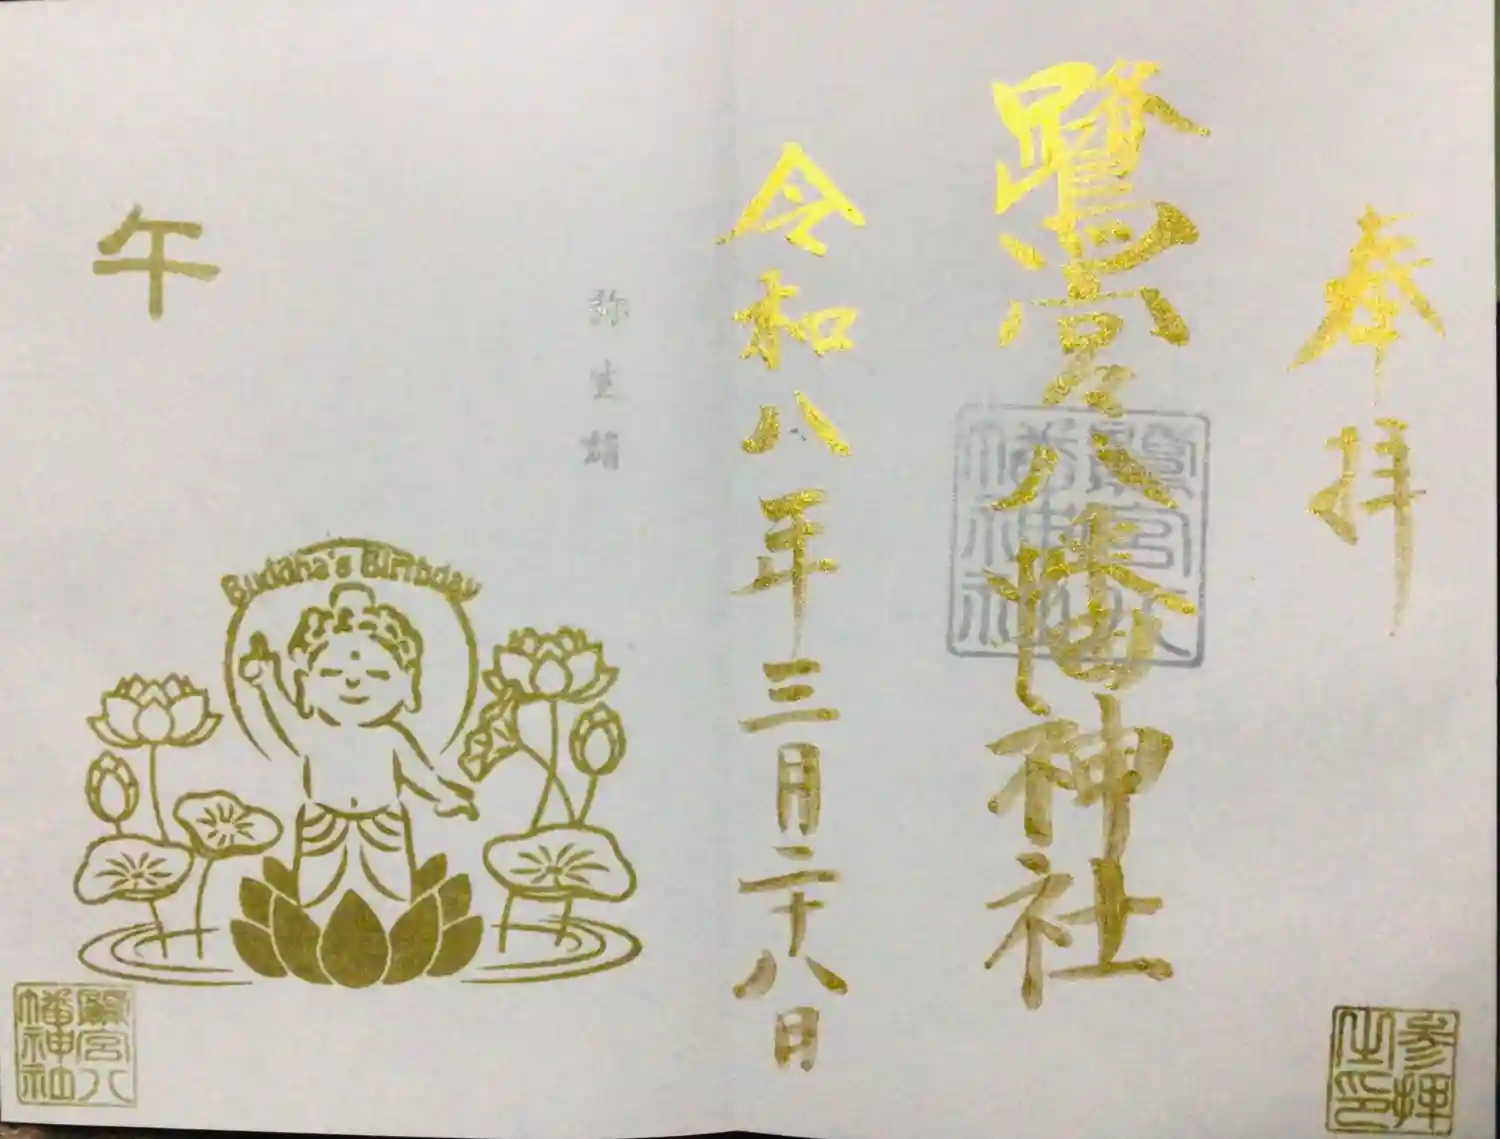 奉拝
鷺宮八幡神社
鷺宮八幡神社
令和八年三月二十八日
弥生詣
午
Buddha's Birthday
鷺宮八幡神社
参拝之印